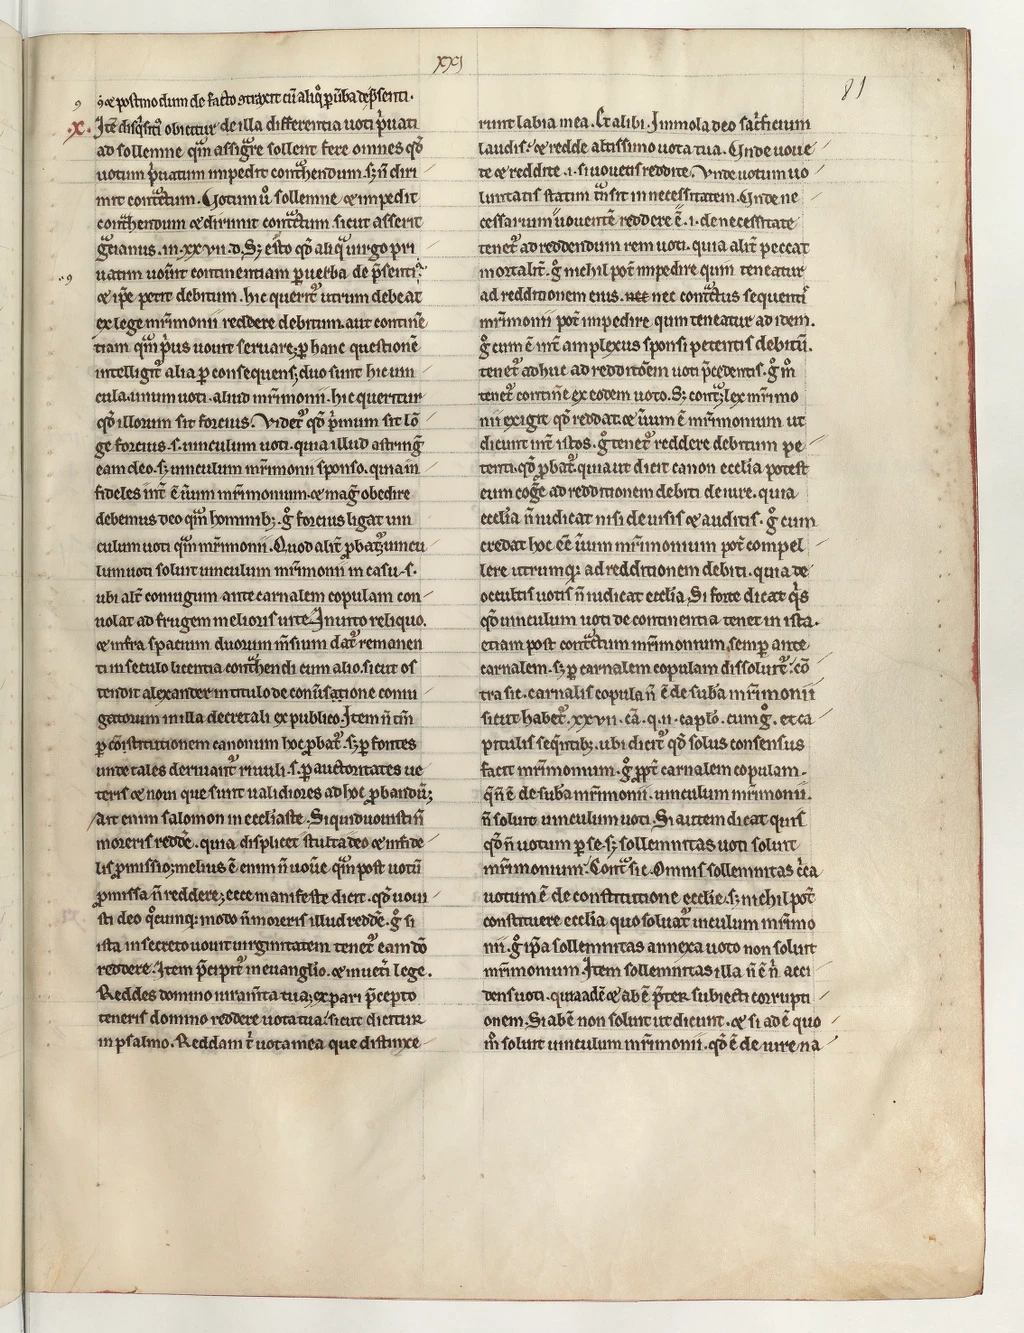 xxj
81
⁊ postmodum de facto ꝯtraxit cũ aliq̊ ꝑ ũba de p̃senti.
.x. Itẽ disq̃siti obicitur de illa differentia uoti p̃uati
ad sollemne qm̃ assig̃re solent fere omnes qð
uotum p̃uatum impedit cont̃hendum. sꝫ ñ diri
mit cont̃ctum. Uotum ů sollemne ⁊ impedit
cont̃hendum ⁊ dirimit cont̃ctum. sicut asserit
g̃cianus. in. xxvii. d. Sꝫ esto qð aliq̃ uirgo pri
uatim uoũit continentiam ꝑ uerba de p̃senti.
⁊ ip̃e petit debitum. hic querit᷑ utrum debeat
ex lege mr̃imonii reddere debitum. aut contine
tiam qm̃ p̃us uouit seruare; ꝑ hanc questionẽ
intelligit᷑ alia ꝑ consequens; duo sunt hic uin
cula. unum uoti. aliud mr̃imonii. hic queritur
qð illorum sit forcius. Videt᷑ qð p̃imum sit lõ
ge forcius .s. uinculum uoti. quia illud astring̃
eam deo. sꝫ uinculum mr̃imonii sponso. quia in
fideles int̃ ẽ ũum mr̃imonium. ⁊ mag̃ obedire
debemus deo qm̃ hominibꝫ. g̊ forcius ligat uin
culum uoti qm̃ mr̃imonii. Quod alit̃ ꝓbat᷑; uincu
lum uoti soluit uinculum mr̃imonii in casu .s.
ubi alt̃ coniugum ante carnalem copulam con
uolat ad frugem melioris uite. Inuito reliquo.
⁊ infra spacium duorum m̃sium dat᷑ remanen
ti in seculo licentia cont̃hendi cum alio. sicut os
tendit alexander in titulo de conũsatione coniu
gatorum in illa decretali ex publico. Item ñ tm̃
ꝑ cõstitutionem canonum hoc ꝓbat᷑. sꝫ ꝑ fontes
unde tales deriuant᷑ riuuli .s. ꝑ auctoritates ue
teris ⁊ noui que sunt ualidiores ad hoc ꝓbandũ;
Ait enim salomon in ecclĩaste. Si quid uouisti ñ
moreris reddẽ. quia displicet stulta deo ⁊ infide
lis ꝓmissio; melius ẽ enim ñ uoũe qm̃ post uotũ
ꝓmissa ñ reddere; ecce manifeste dicit. qð uoui
sti deo q̊cumqꝫ modo ñ moreris illud reddẽ. g̊ si
ista in secreto uouit uirginitatem tenet᷑ eam dõ
reddere. Item p̃cipit᷑ in euanglio. ⁊ in uet̃i lege.
Reddes domino iuram̃ta tua; ex pari p̃cepto
teneris domino reddere uota tua. sicut dicitur
in psalmo. Reddam t̃ uota mea que distinxe
runt labia mea. Et alibi. Immola deo sac̃ficium
laudis: ⁊ redde altissimo uota tua. Unde uoue
te ⁊ reddite .i. si uouetis reddite. Unde uotum uo
luntatis statim tñ sit in necessitatem. Unde ne
cessarium uouentẽ reddere ẽ .i. de necessitate
tenet᷑ ad reddendum rem uoti. quia alit̃ peccat
mortalit̃. g̊ nichil pot̃ impedire quin teneatur
ad redditionem eius. nec cont̃ctus sequentis
mr̃imonii pot̃ impedire quin teneatur ad idem.
g̊ cum ẽ int̃ amplexus sponsi petentis debitũ.
tenet᷑ adhuc ad redditõem uoti p̃cedentis. g̊ m̃
tenet᷑ continẽ ex eodem uoto. Sꝫ cont̃; lex mr̃imo
nii exigit qð reddat. ⁊ ũum ẽ mr̃imonium ut
dicunt int̃ istos. g̊ tenet᷑ reddere debitum pe
tenti. qð ꝓbat᷑. quia ut dicit canon ecclĩa potest
eum cog̃e ad redditionem debiti de iure. quia
ecclĩa ñ iudicat nisi de uisis ⁊ auditis. g̊ cum
credat hoc eẽ ũum mr̃imonium pot̃ compel
lere utrumqꝫ ad redditionem debiti. quia de
occultis uotis ñ iudicat ecclĩa. Si forte dicat q̃s
qð uinculum uoti de continentia tenet in ista.
etiam post cont̃ctum mr̃imonium semꝑ ante
carnalem. sꝫ ꝑ carnalem copulam dissoluit᷑. cõ
tra sic. carnalis copula ñ ẽ de sub̃a mr̃imonii
sicut habet᷑. xxvii. cã. q̃. ii. capl̃o. cum g̊. et ca
pitulis seq̃ntibꝫ. ubi dicit᷑ qð solus consensus
facit mr̃imonium. g̊ ꝓpt̃ carnalem copulam.
q̃ ñ ẽ de sub̃a mr̃imonii. uinculum mr̃imonii.
ñ soluit uinculum uoti. Si autem dicat quis
qð ñ uotum ꝑ se. sꝫ sollemnitas uoti soluit
mr̃imonium. Cont̃ sic. Omnis sollemnitas c̃ca
uotum ẽ de constitutione ecclie. sꝫ nichil pot̃
constituere ecclĩa quo soluat᷑ uinculum mr̃imo
nii. g̊ ip̃a sollemnitas annexa uoto non soluit
mr̃imonium. Item sollemnitas illa ñ ẽ ñ acci
dens uoti. quia adẽ ⁊ abẽ p̃ter subiecti corrupti
onem. Si abẽ non soluit ut dicunt. ⁊ si adẽ quo
m̊ soluit uinculum mr̃imonii. qð ẽ de iure na